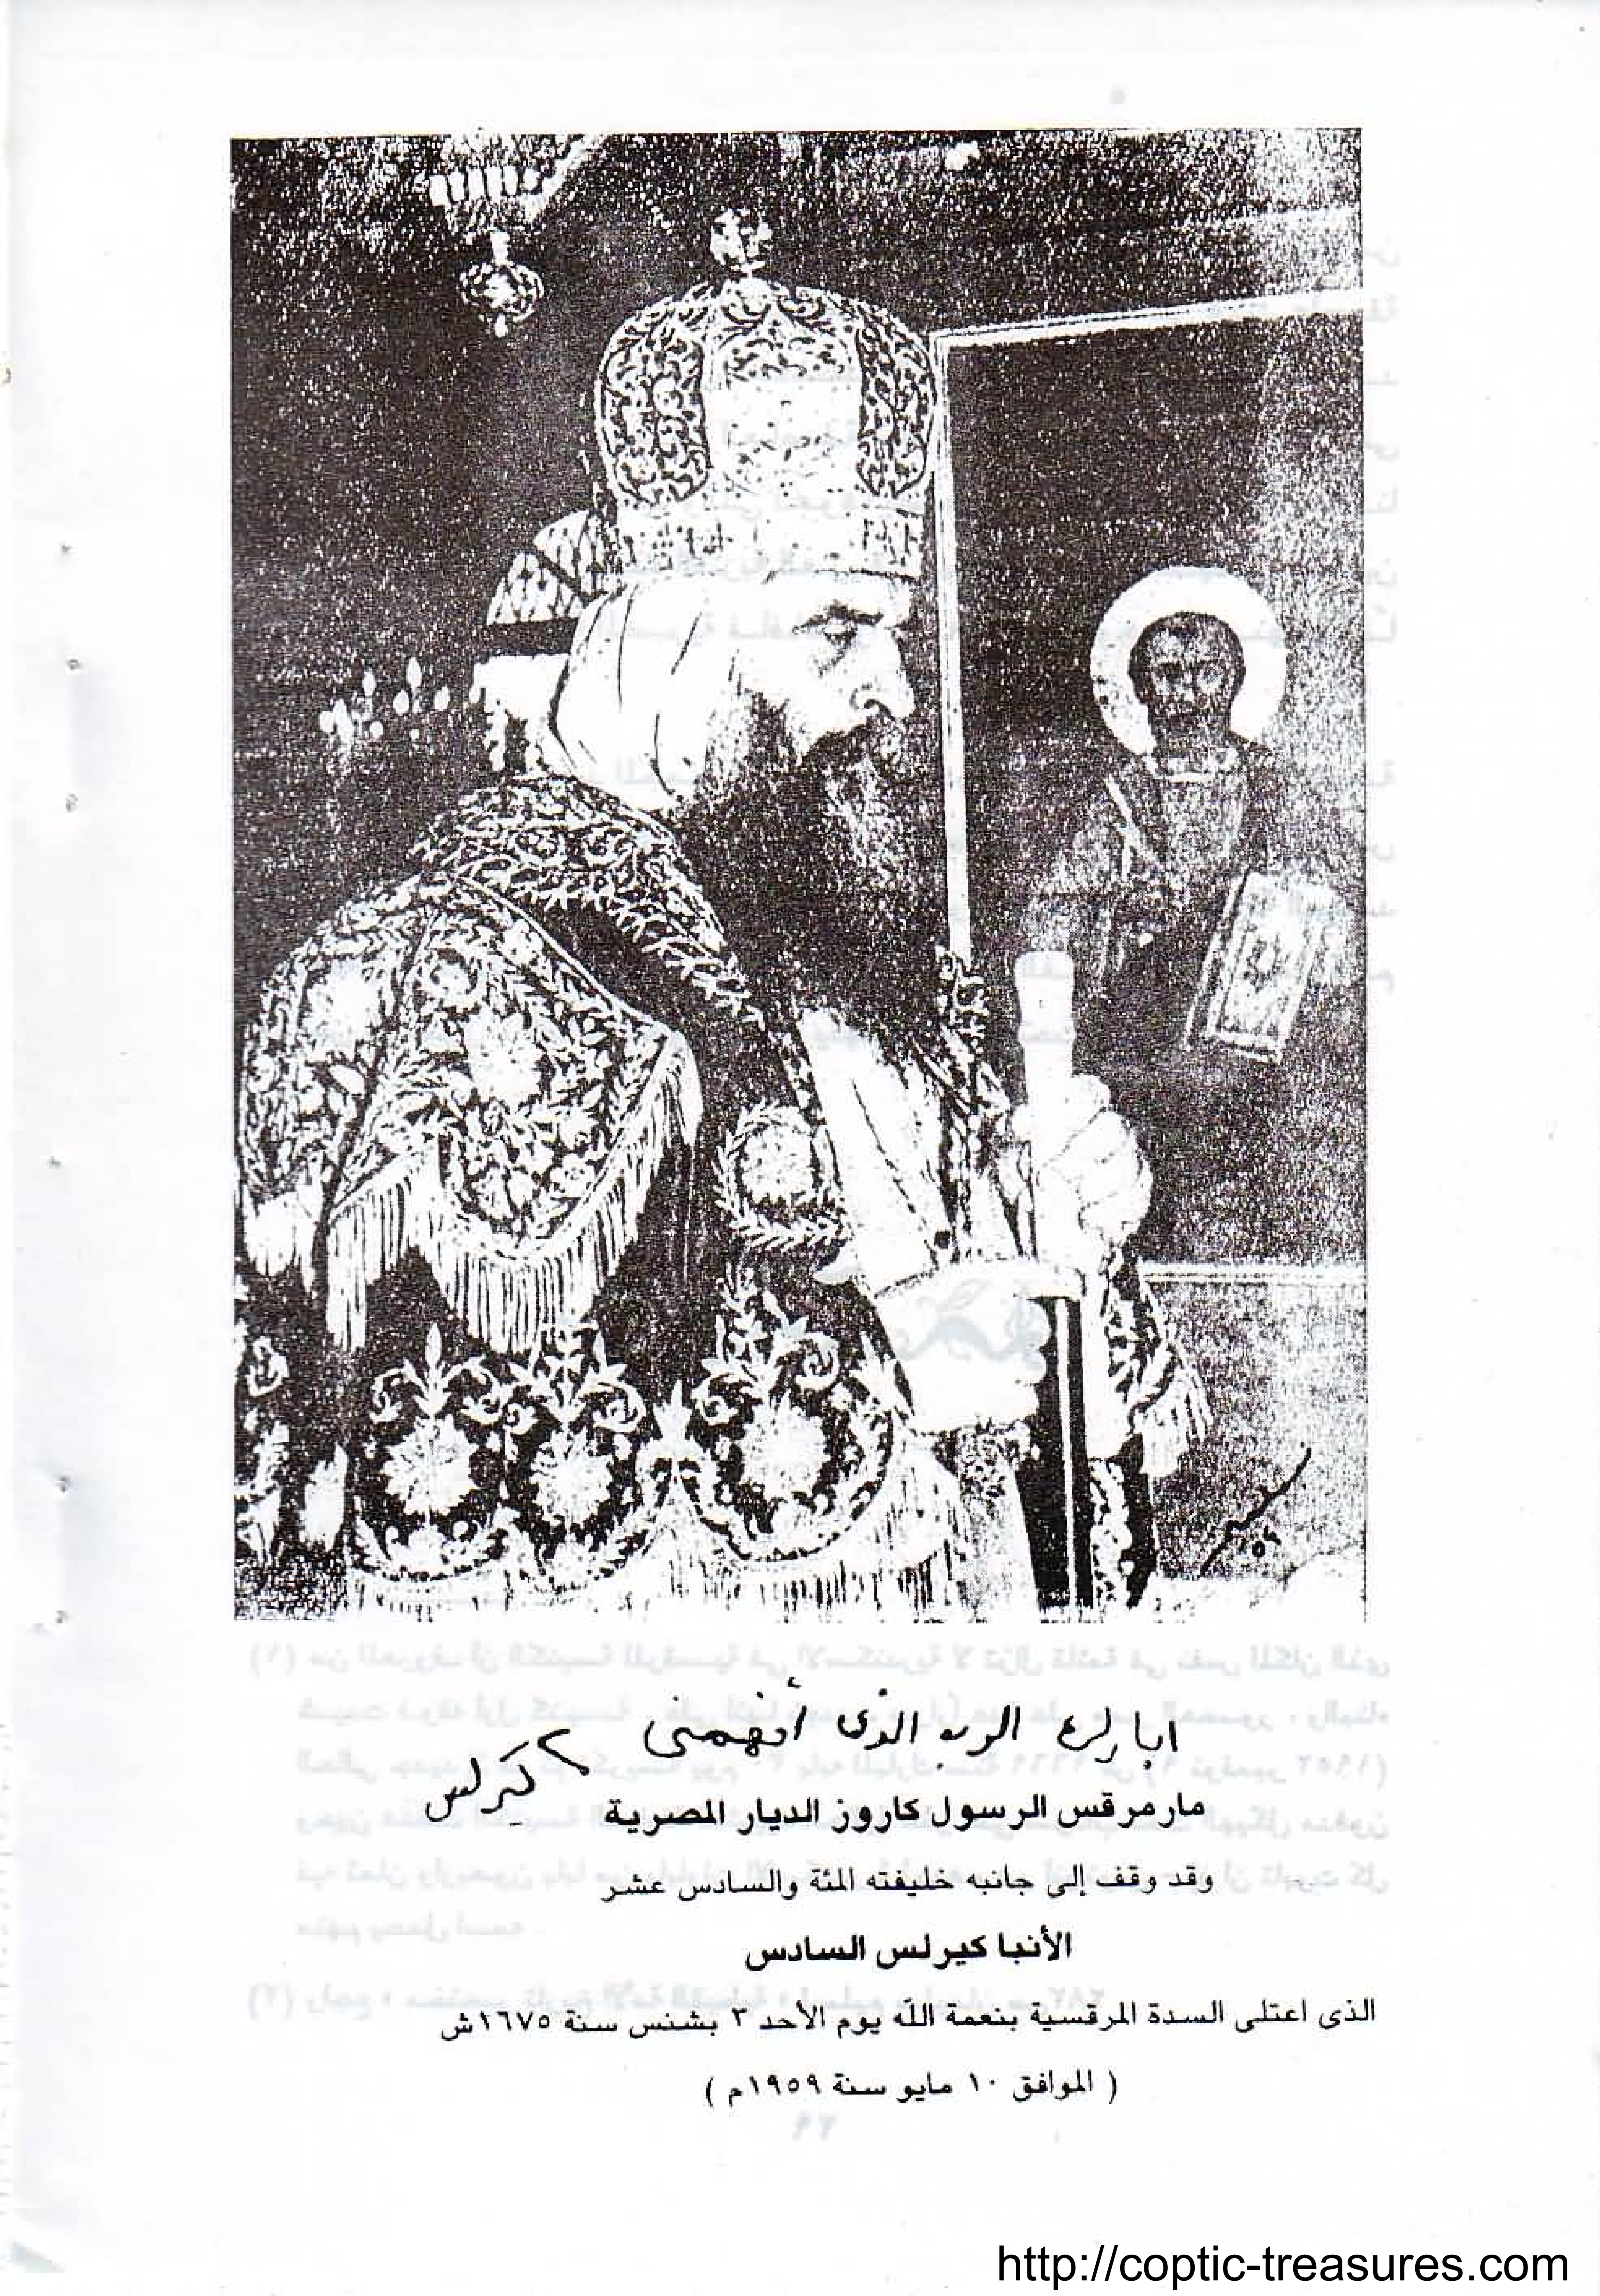 أبارك الرب الذى أفهمنى
كيرلس
مارمرقس الرسول كاروز الديار المصرية
وقد وقف إلى جانبه خليفته المئة والسادس عشر
الأنبا كيرلس السادس
الذى اعتلى السدة المرقسية بنعمة الله يوم الأحد ٣ بشنس سنة ١٦٧٥ش
( الموافق ١٠ مايو سنة ١٩٥٩م )
http://coptic-treasures.com